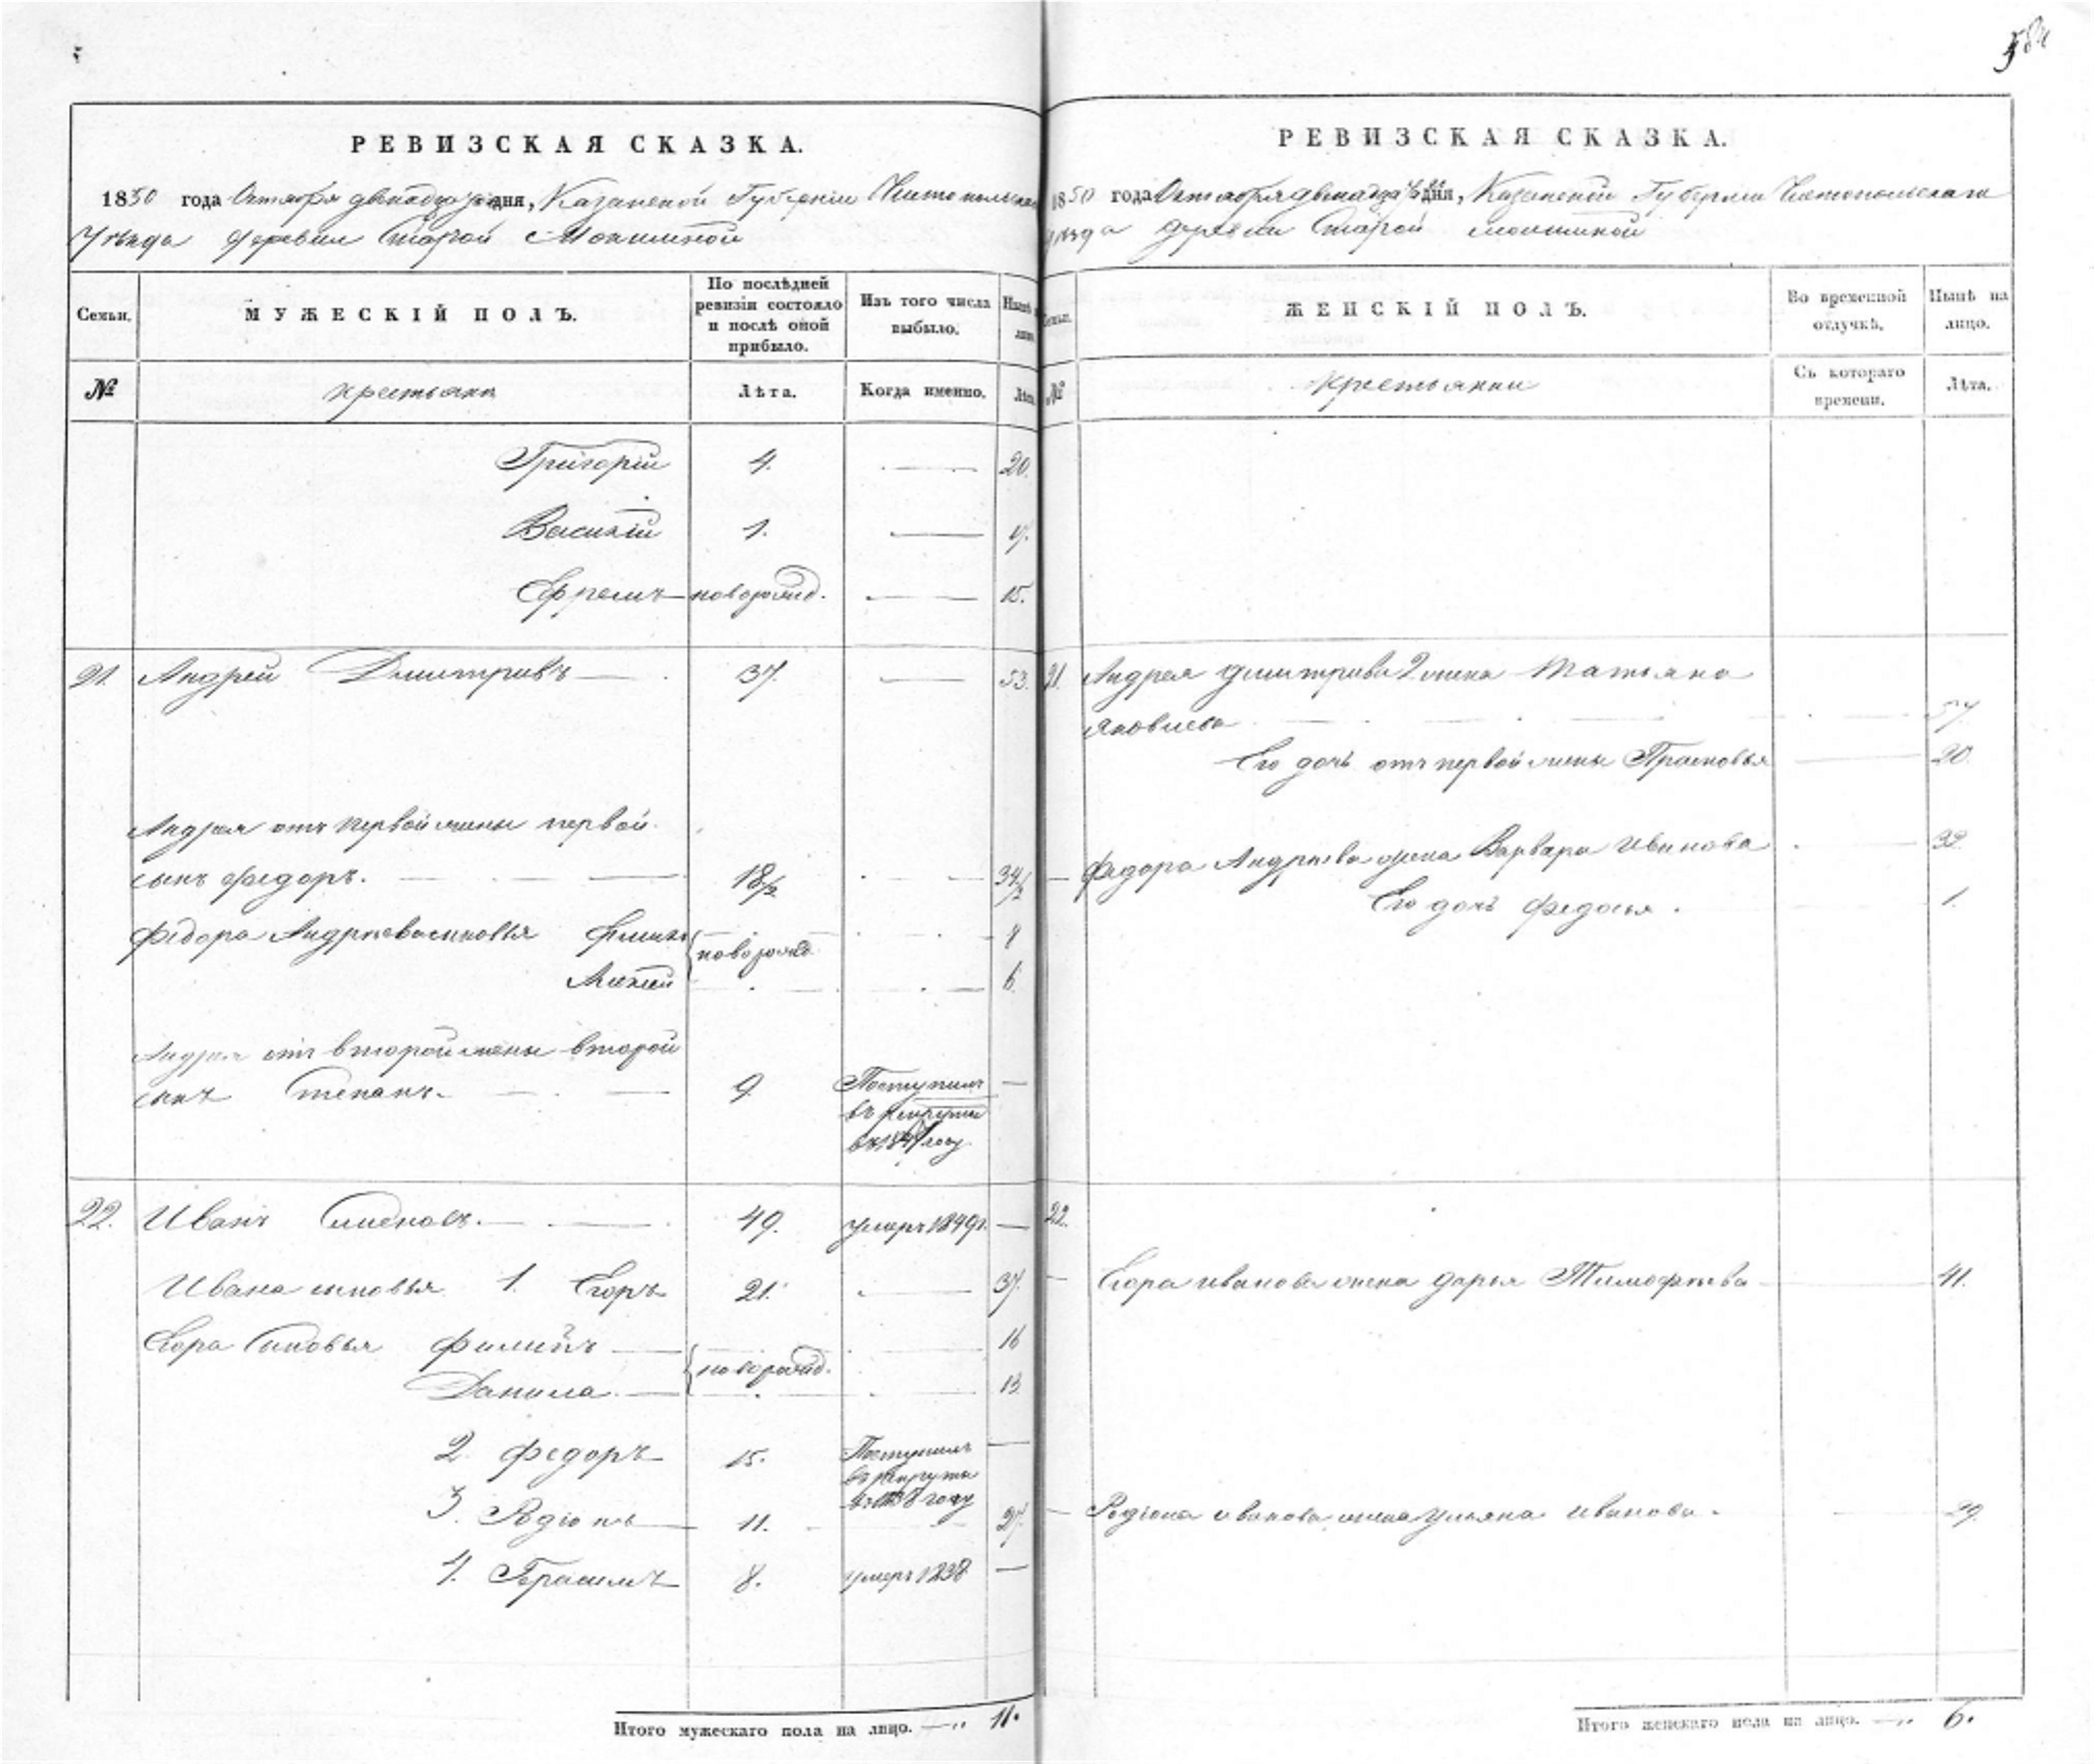 РЕВИЗСКАЯ СКАЗКА.
1850 года Октября дня, Казанской Губернии Чистопольскаго
Уѣзда деревни Старой Мокшиной
Семьи.
МУЖЕСКІЙ ПОЛЪ.
По послѣдней ревизіи состояло и послѣ оной прибыло.
Изъ того числа выбыло.
Нынѣ
№
крестьяне
Лѣта.
Когда именно.
Лѣта
Григорій 4. — 20.
Василій 1. —
Ефремъ новорожд. — 15.
21. Андрей Дмитрiевъ — 37. — 53.
Андрея отъ первой жены первой
сынъ Федоръ. — 18/2 — 34/2
Федора Андреева сыновья
новорожд. 8
Алексей — 6.
Андрея отъ второй жены второй
сынъ Степанъ. — 9. Поступилъ —
въ рекруты
году
22. Иванъ Семеновъ. — 49. умеръ 1849 г. —
Ивана сыновья 1. Егоръ 21. — 37.
Егора Сыновья Филипъ — 16
новорожд.
Данила — 13.
2. Федоръ 15. Поступилъ —
въ рекруты
году
3. Родіонъ 11. 27.
4. Герасимъ 8. умеръ 1838 —
Итого мужескаго пола на лицо. — „ 11.
РЕВИЗСКАЯ СКАЗКА.
1850 года Октября дня, Казанской Губерніи Чистопольскаго
уѣзда деревни Старой мокшиной
№
ЖЕНСКІЙ ПОЛЪ.
Во временной отлучкѣ.
Нынѣ на лицо.
крестьянки
Съ котораго времени.
Лѣта.
21. Андрея Дмитрiева 2 жена Татьяна
Яковлева — 57.
Его дочь отъ первой жены Прасковья — 20.
Федора Андреева жена Варвара Иванова
Его дочь Федосья. 1.
22.
Егора Иванова жена Дарья Тимофеева — 41.
Родіона Иванова жена Ульяна Иванова. — 29.
Итого женскаго пола на лицо. — „ 6.